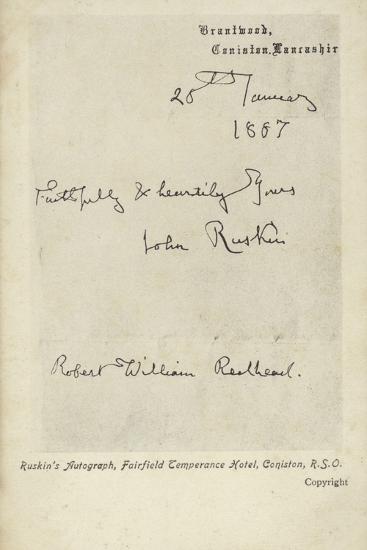 Brantwood,
Coniston, Lancashir
20th January
1887
Faithfully & heartily Yours
John Ruskin
Robert William Redhead.
Ruskin's Autograph, Fairfield Temperance Hotel, Coniston, R.S.O.
Copyright